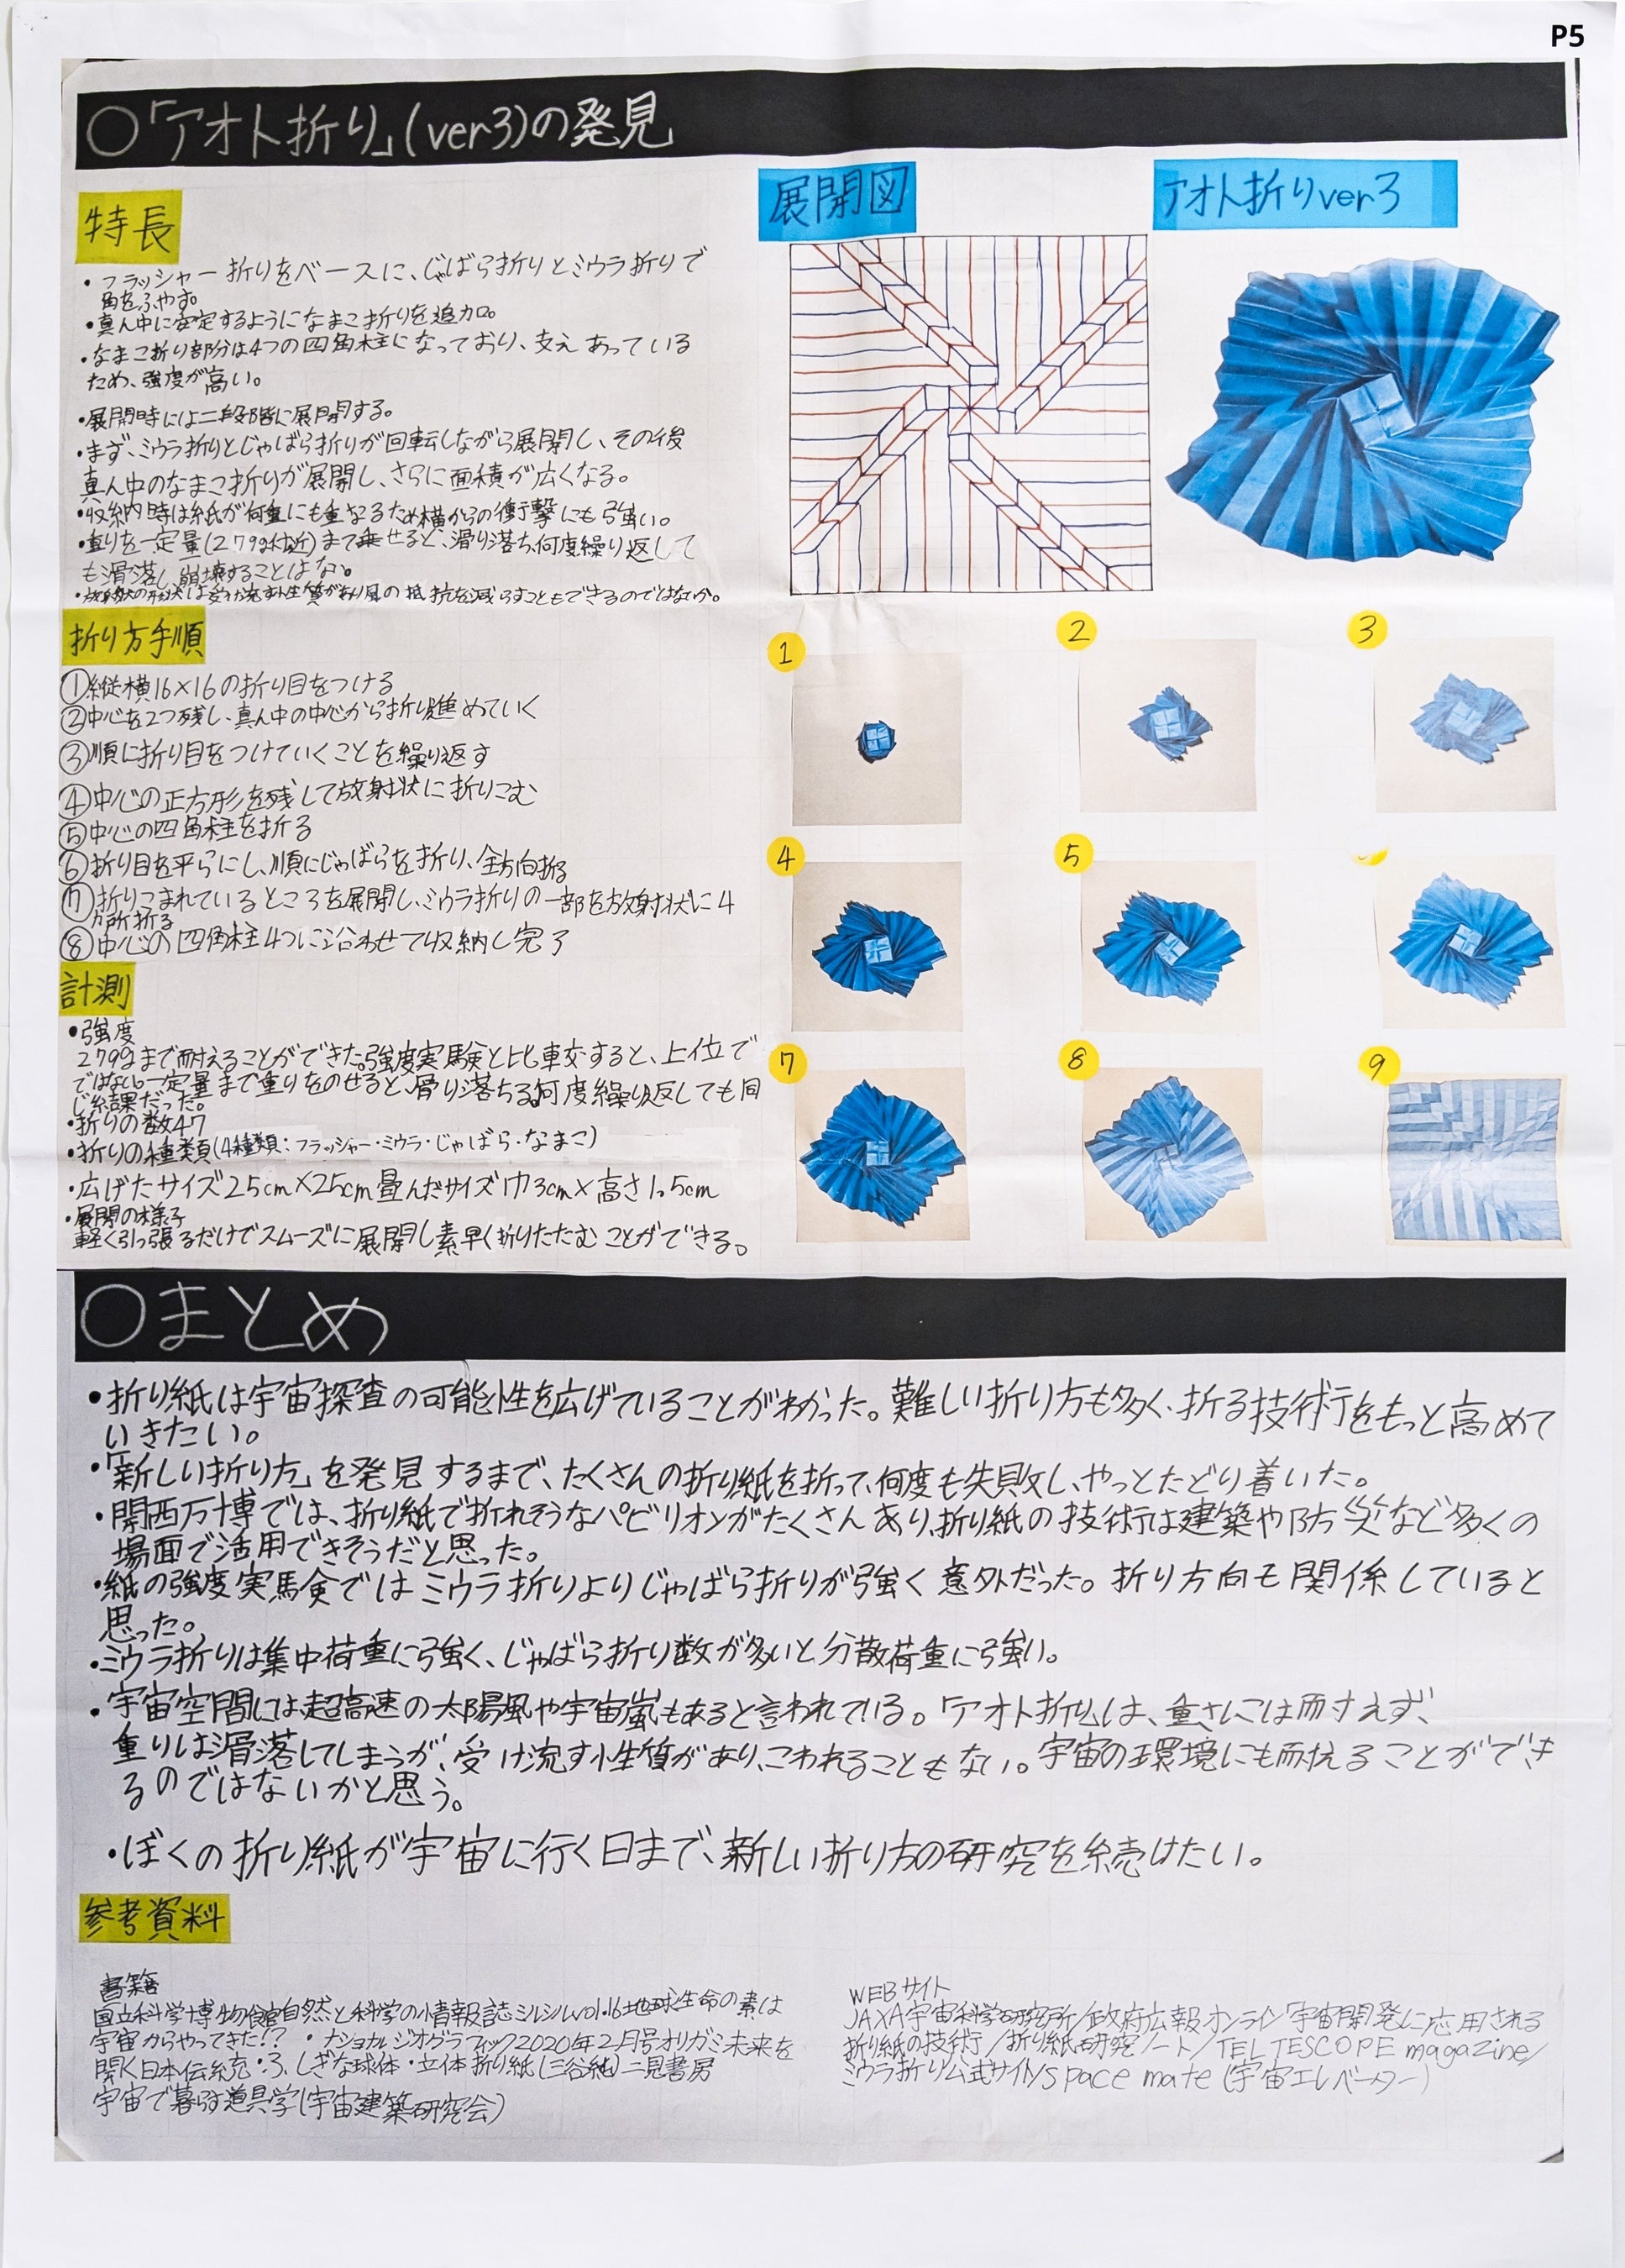 P5
○「アオト折り」(ver3)の発見
特長
・フラッシャー折りをベースに、じゃばら折りとミウラ折りで
角をふやす。
・真ん中に安定するようになまこ折りを追加。
・なまこ折り部分は4つの四角柱になっており、支えあっている
ため、強度が高い。
・展開時には二段階に展開する。
・まず、ミウラ折りとじゃばら折りが回転しながら展開し、その後
真ん中のなまこ折りが展開し、さらに面積が広くなる。
・収納時は紙が何重にも重なるため横からの衝撃にも強い。
・重りを一定量(279g付近)まで乗せると、滑り落ち、何度繰り返して
も滑落し、崩壊することはない。
・放射状の形状は受け流す性質があり風の抵抗を減らすこともできるのではないか。
展開図
アオト折りver3
折り方手順
①縦横16×16の折り目をつける
②中心を2つ残し、真ん中の中心から折り進めていく
③順に折り目をつけていくことを繰り返す
④中心の正方形を残して放射状に折りこむ
⑤中心の四角柱を折る
⑥折り目を平らにし、順にじゃばらを折り、全方向折る
⑦折りこまれているところを展開し、ミウラ折りの一部を放射状に4
カ所折る
⑧中心の四角柱4つに沿わせて収納し完了
1
2
3
4
5
7
8
9
計測
・強度
279gまで耐えることができた。強度実験と比較すると、上位で
ではない。一定量まで重りをのせると、滑り落ちる。何度繰り返しても同
じ結果だった。
・折りの数47
・折りの種類(4種類:フラッシャー・ミウラ・じゃばら・なまこ)
・広げたサイズ25cm×25cm 畳んだサイズ巾3cm×高さ1.5cm
・展開の様子
軽く引っ張るだけでスムーズに展開し素早く折りたたむことができる。
○まとめ
・折り紙は宇宙探査の可能性を広げていることがわかった。難しい折り方も多く、折る技術をもっと高めて
いきたい。
・「新しい折り方」を発見するまで、たくさんの折り紙を折って、何度も失敗し、やっとたどり着いた。
・関西万博では、折り紙で折れそうなパビリオンがたくさんあり、折り紙の技術は建築や防災など多くの
場面で活用できそうだと思った。
・紙の強度実験ではミウラ折りよりじゃばら折りが強く意外だった。折り方向も関係していると
思った。
・ミウラ折りは集中荷重に強く、じゃばら折り数が多いと分散荷重に強い。
・宇宙空間には、超高速の太陽風や宇宙嵐もあると言われている。「アオト折り」は、重さには耐えず、
重りは滑落してしまうが、受け流す性質があり、こわれることもない。宇宙の環境にも耐えることができ
るのではないかと思う。
・ぼくの折り紙が宇宙に行く日まで、新しい折り方の研究を続けたい。
参考資料
書籍
国立科学博物館自然と科学の情報誌ミルシルvol.16地球生命の素は
宇宙からやってきた!?・ナショナルジオグラフィック2020年2月号オリガミ未来を
開く日本伝統・ふしぎな球体・立体折り紙(三谷純)二見書房
宇宙で暮らす道具学(宇宙建築研究会)
WEBサイト
JAXA宇宙科学研究所/政府広報オンライン「宇宙開発に応用される
折り紙の技術/折り紙研究ノート/TEL TESCOPE magazine/
ミウラ折り公式サイト/space mate(宇宙エレベーター)